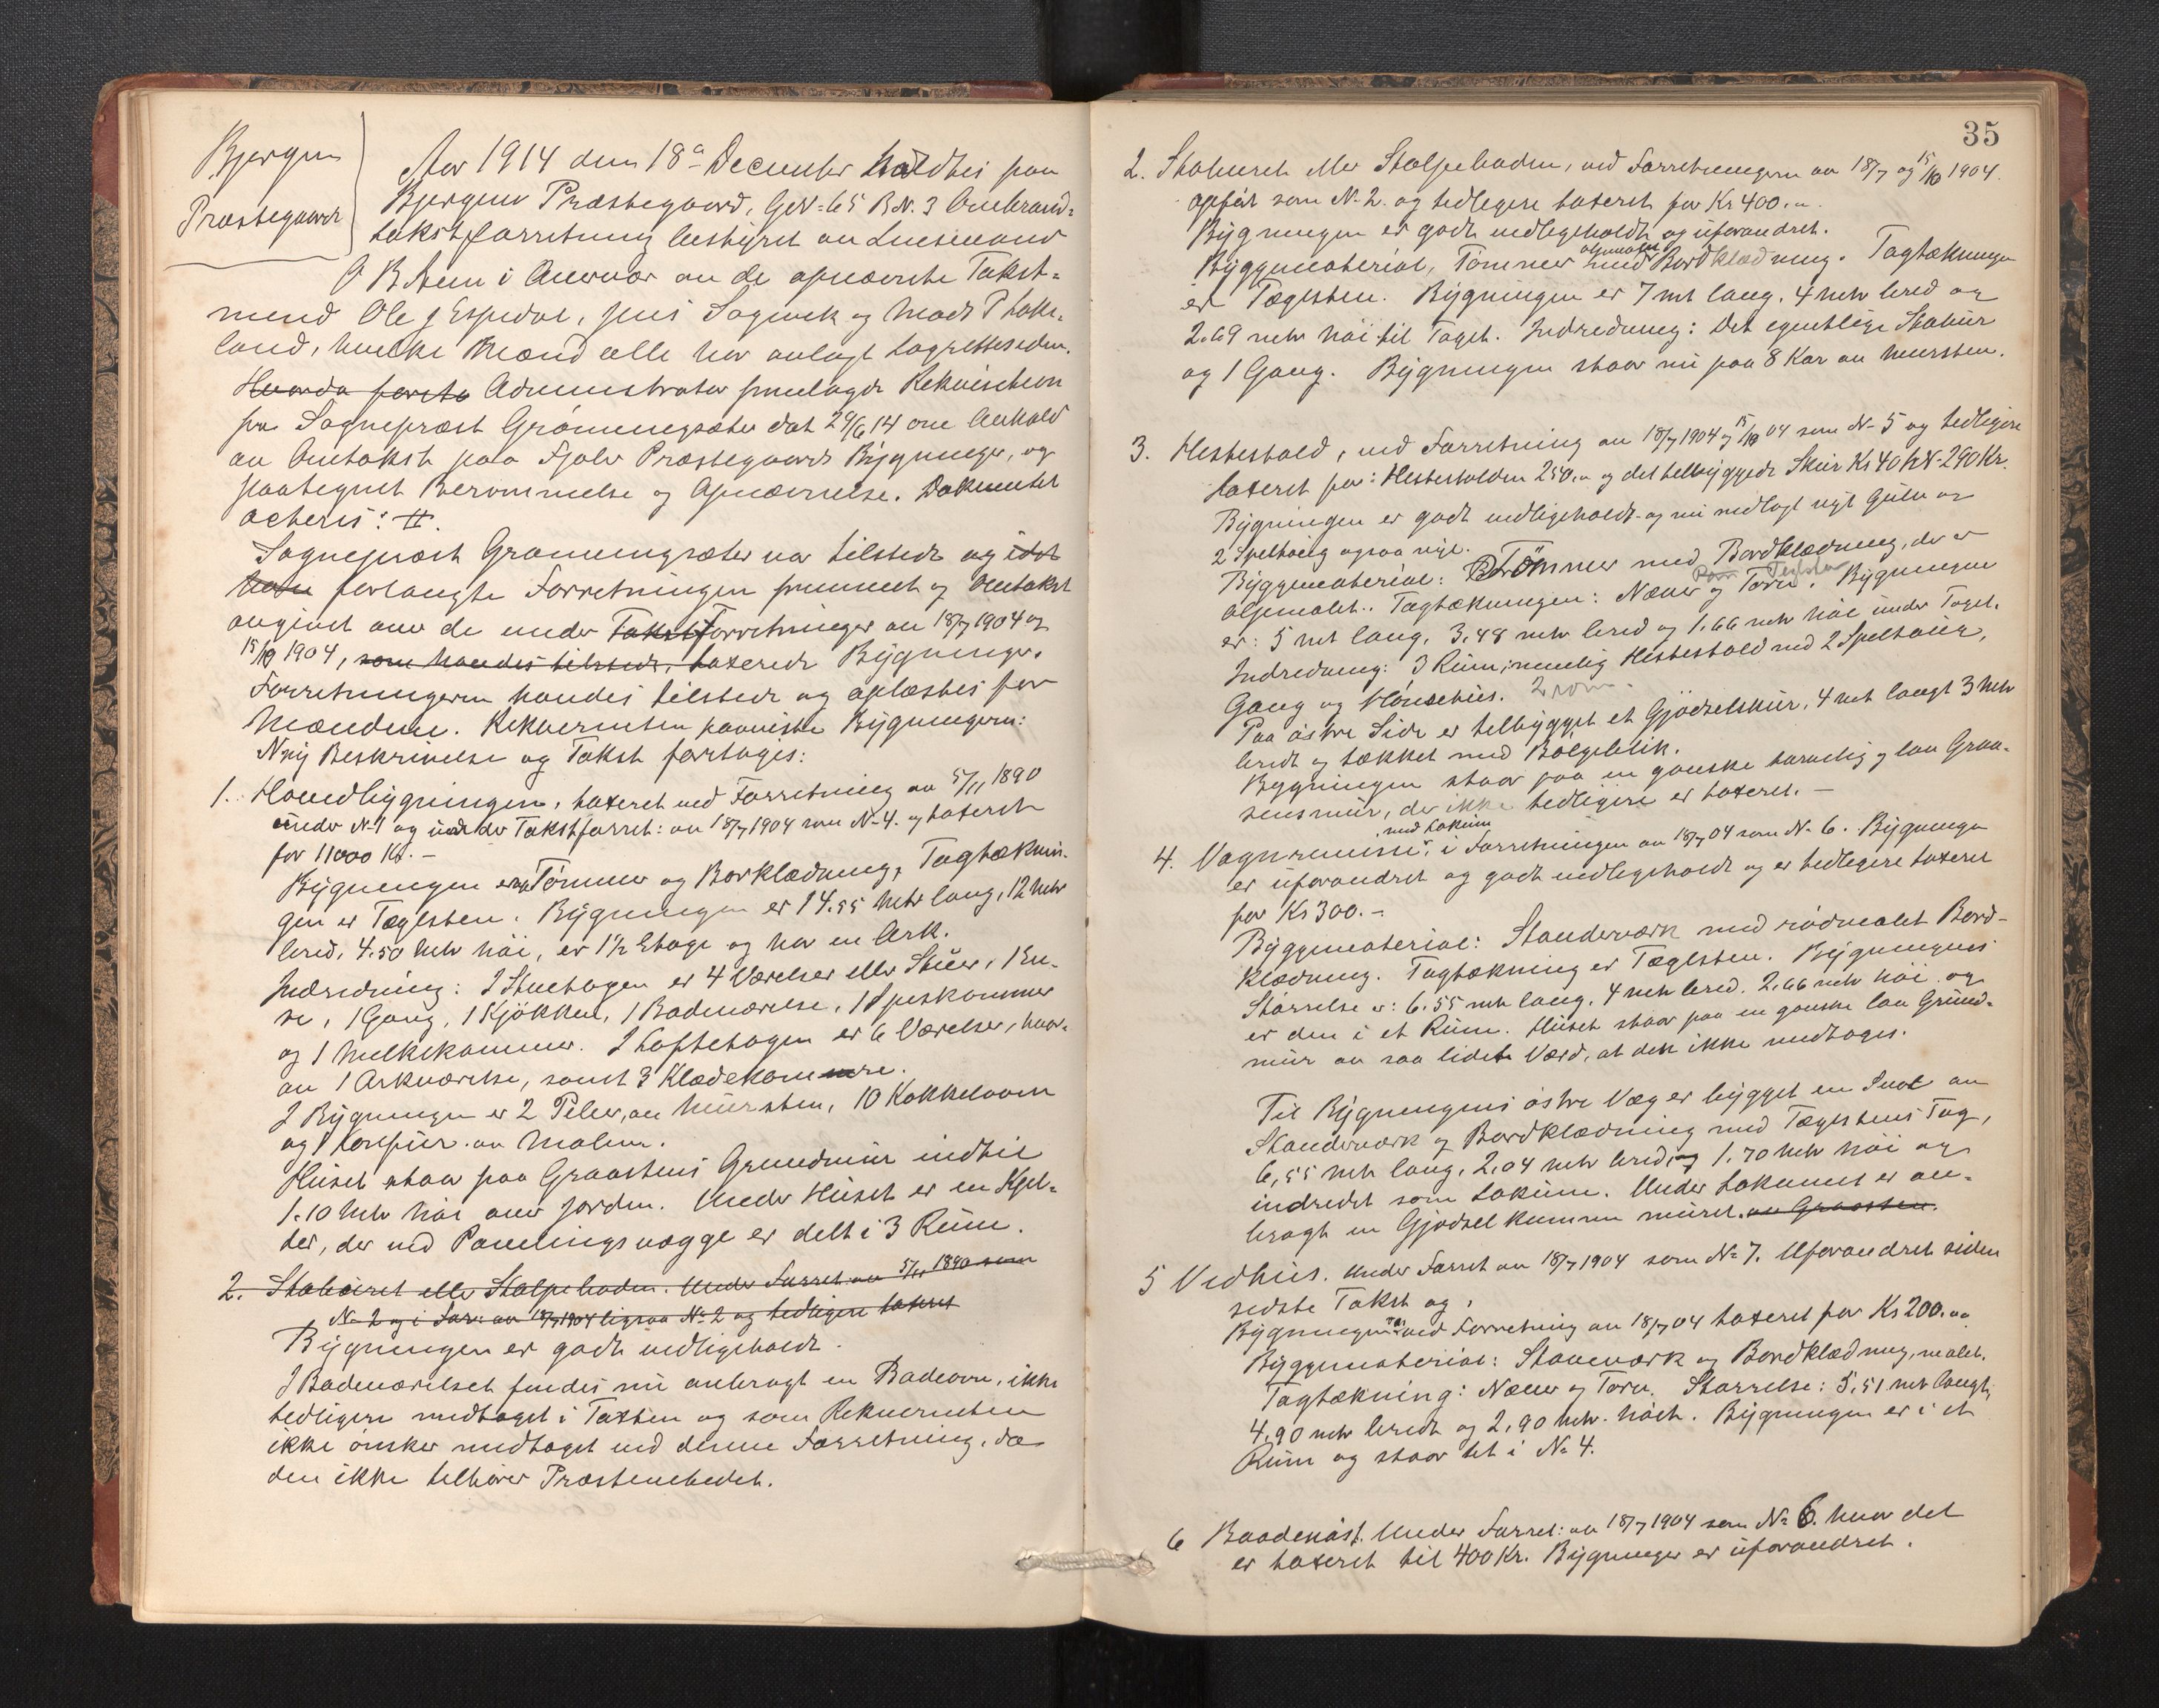 Bjergum
Præstegaard
Aar 1914 den 18de December holdtes paa
Bjergum Præstegaard, GrN. 65 B.N. 3 Ombrand-
takstforretning bestyret av Lensmand
O B Aum i Nærvær av de opnævnte Takst-
mænd Ole J Espedal, Jens Sagevik og Mads P Lake-
land, hvilke Mænd alle har avlagt Lagretteseden.
Hvorda første Administrator fremlagde Rekvisition
fra Sogneprest Grønningsæter dat 29/6 14 om Avhold
av Omtakst paa Fjaler Præstegaards Bygninger, og
paategnet Berammelse og Opnævnelse. Dokumentet
acteres: H.
Sogneprest Grønningsæter var tilstede og idet
han forlangte Forretningen fremmet og Omtakst
avgivet over de under Takstforretninger av 18/7 1904 og
15/10 1904, som havdes tilstede, taxerede Bygninger.
Forretningerne havdes tilstede og oplæstes for
Mændene. Rekvirenten paaviste Bygningerne:
Ny Beskrivelse og Takst foretages:
1. Hovedbygningen, taxeret ved Forretning av 5/11 1890
under N-1 og under Takstforret: av 18/7 1904 som N-4. og taxeret
for 11000 Kr. -
Bygningen er av Tømmer og Borklædning, Tagtæknin-
gen er Tæglsten. Bygningen er 14.55 mtr lang, 12 mtr
bred, 4.50 mtr høi, er 1½ Etage og har en Ark.
Indredning: I Stuetagen er 4 Værelser eller Stuer, 1 En-
tre, 1 Gang, 1 Kjøkken, 1 Badeværelse, 1 Speskammer
og 1 Melkekammer. I Loftetagen er 6 Værelser, hvor-
av 1 Arkværelse, samt 3 Klædekammere.
I Bygningen er 2 Peler, av Mursten, 10 Kakkelovne
og 1 Komfur. av Malm.
Huset staar paa Graastens Grundmur indtil
1.10 mtr høi over Jorden. Under Huset er en Kjel-
der, der ved Panelingsvægge er delt i 3 Rum.
2. Stabburet eller Stolpeboden. Under Forret: av 5/11 1890 som
N- 2 og i For: av 18/7 1904 ligesaa N- 2 og tidligere taxeret
Bygningen er godt vedligeholdt.
I Badeværelset findes nu anbragt en Badeovn, ikke
tidligere medtaget i Taxten og som Rekvirenten
ikke ønsker medtaget ved denne Forretning, da
den ikke tilhører Præsteembedet.
35
2. Stabburet eller Stolpeboden, ved Forretningen av 18/7 og 15/10 1904
opført som N-2. og tidligere taxeret for Kr 400.„
Bygningen er godt vedligeholdt og uforandret.
oljemalet
Byggemateriel, Tømmer med Bordklædning. Tagtækningen
er Tæglsten. Bygningen er 7 mt lang. 4 mtr bred og
2.69 mtr høi til Taget. Indredning: Det egentlige Stabur
og 1 Gang. Bygningen staar nu paa 8 Kar av Mursten.
3. Hestestald, ved Forretning av 18/7 1904 og 15/10 04 som N- 5 og tidligere
taxeret for: Hestestalden 250.„ og det tilbyggede Skur Kr 40 tils. 290 Kr.
Bygningen er godt vedligeholdt og nu nedlagt nyt Gulv og
2 Spelltaug ogsaa nye.
Byggemateriel: Tømmer med Bordklædning, der er
oljemalet. Tagtækningen: Næver og Torv. Bygningen
Tæglsten
er: 5 mt lang, 3.48 mtr bred og 1.66 mtr høi under Taget.
Indredning: 3 Rum, nemlig Hestestald med 2 Speltauer,
Gang og Hønsehus. 2 rom.
Paa østre Side er tilbygget et Gjødselskur, 4 mt langt 3 mtr
bredt og tækket med Bølgeblik.
Bygningen staar paa en ganske tarvelig og lav Graa-
stensmur, der ikke tidligere er taxeret. -
med Lokum
4. Vognremisse, i Forretningen av 18/7 04 som N- 6. Bygningen
er uforandret og godt vedligeholdt og er tidligere taxeret
for Kr 300.-
Byggemateriel: Standerværk med rødmalet Bord-
klædning. Tagtækning er Tæglsten. Bygningens
Størrelse er: 6.55 mtr lang. 4 mtr bred. 2.66 mtr høi og
er den i et Rum. Huset staar paa en ganske lav Grund-
mur av saa lidet Værd, at den ikke medtages.
Til Bygningens østre Væg er bygget en Sval av
Standerværk og Bordklædning med Tæglstens Tag,
6,55 mtr lang, 2,04 mtr bred, og 1.70 mtr høi og
indredet som Lokum. Under Lokumet er an-
bragt en Gjødselkumme muret. av Graasten.
5 Vedhus. Under Forret av 18/7 1904 som N- 7. Uforandret siden
sidste Takst og.
Bygningen ved Forretning av 18/7 04 taxeret for Kr 200.„
Byggemateriel: Stavværk og Bordklædning, malet.
Tagtækning: Næver og Torv. Størrelse: 5,51 mtr langt,
4,90 mtr bredt og 2,90 mtr. høit. Bygningen er i et
Rum og staar tet i N- 4.
6 Baadenøst. Under Forret: av 18/7 1904 som N- 6. hvor det
er taxeret til 400 Kr. Bygningen er uforandret.